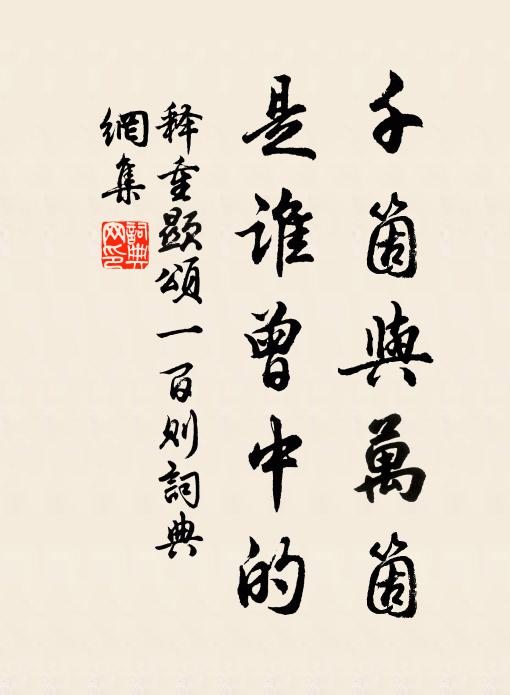 千箇與萬箇
是誰曾中的
释重顯頌一百则詞典
網集
詞典
网印